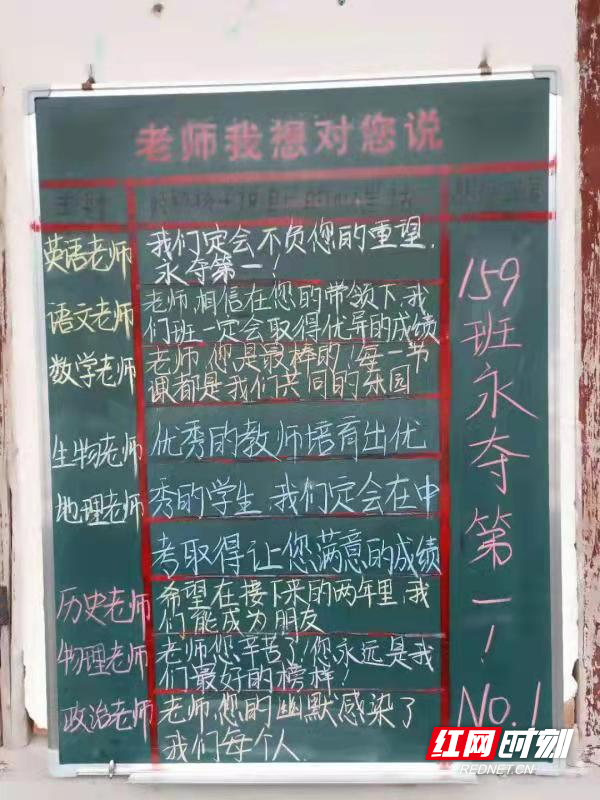 老师我想对您说
英语老师
我们定会不负您的重望,
永夺第一!
语文老师
老师,相信在您的带领下,我
们班一定会取得优异的成绩
数学老师
老师,您是最棒的!每一节
课都是我们共同的乐园
生物老师
优秀的教师培育出优
地理老师
秀的学生,我们定会在中
考取得让您满意的成绩
历史老师
希望在接下来的两年里,我
们能成为朋友
物理老师
老师您辛苦了!您永远是我
们最好的榜样!
政治老师
老师,您的幽默感染了
我们每个人
159班永夺第一!
NO.1
红网时刻
REDNET.CN